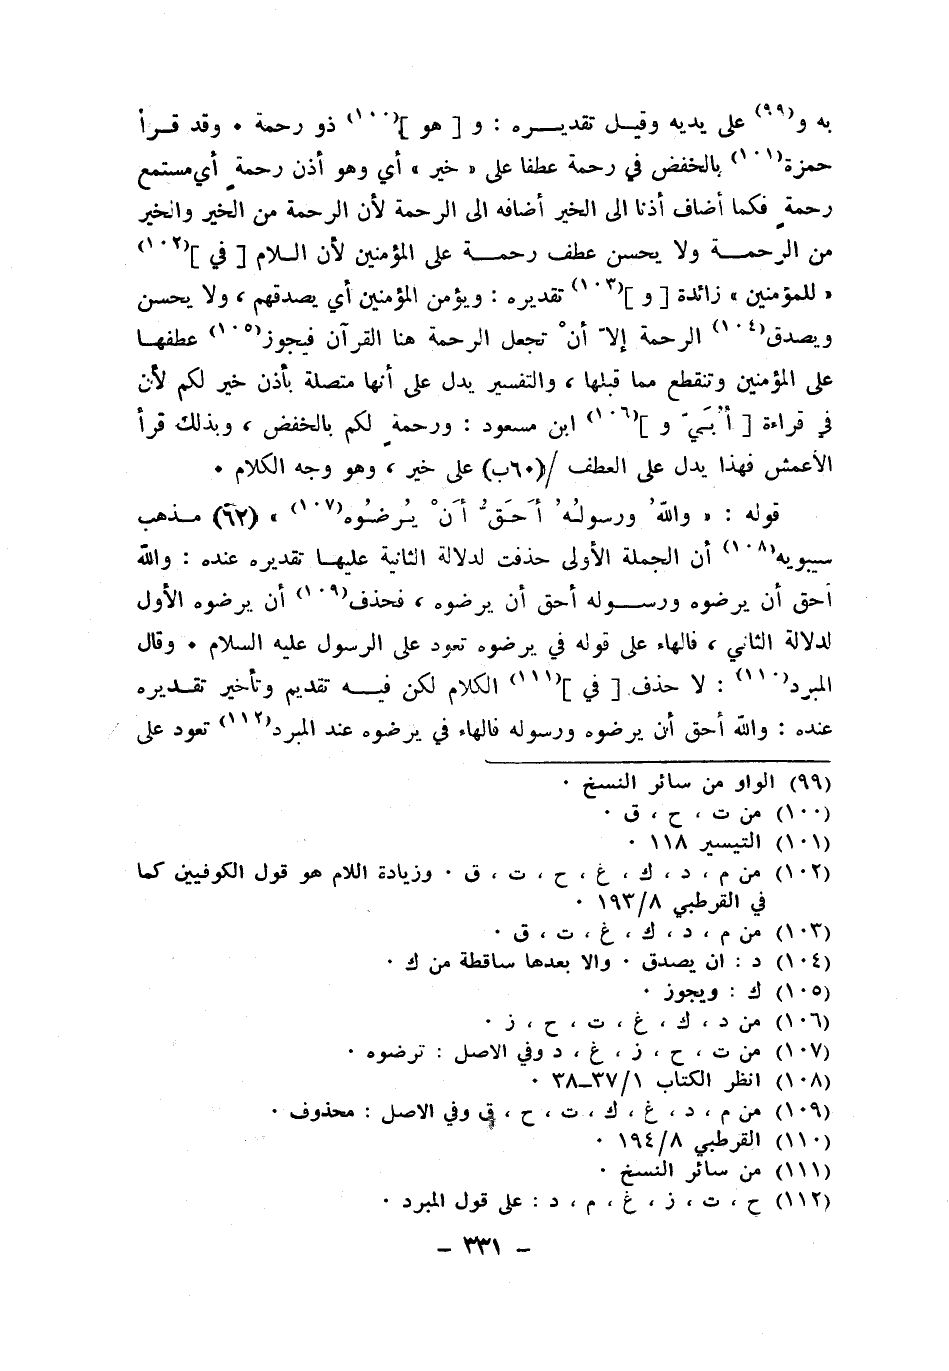 به و(٩٩) على يديه وقيل تقديره : و [ هو ](١٠٠) ذو رحمة ٠ وقد قرأ
حمزة(١٠١) بالخفض في رحمة عطفا على « خير » أي وهو أذن رحمةٍ أي مستمع
رحمةٍ فكما أضاف أذنا الى الخير أضافه الى الرحمة لأن الرحمة من الخير والخير
من الرحمة ولا يحسن عطف رحمة على المؤمنين لأن اللام [ في ](١٠٢)
« للمؤمنين » زائدة [ و ](١٠٣) تقديره : ويؤمن المؤمنين أي يصدقهم ، ولا يحسن
ويصدق(١٠٤) الرحمة إلاّ أنْ تجعل الرحمة هنا القرآن فيجوز(١٠٥) عطفها
على المؤمنين وتنقطع مما قبلها ، والتفسير يدل على أنها متصلة بأذن خير لكم لأن
في قراءة [ أُبَيّ و ](١٠٦) ابن مسعود : ورحمةٍ لكم بالخفض ، وبذلك قرأ
الأعمش فهذا يدل على العطف /(٦٠ب) على خير ، وهو وجه الكلام ٠
قوله : « واللهُ ورسولُهُ أَحَقُّ أَنْ يُرضُوه(١٠٧) » (٦٢) مذهب
سيبويه(١٠٨) أن الجملة الأولى حذفت لدلالة الثانية عليها تقديره عنده : والله
أحق أن يرضوه ورسوله أحق أن يرضوه ، فحذف(١٠٩) أن يرضوه الأول
لدلالة الثاني ، فالهاء على قوله في يرضوه تعود على الرسول عليه السلام ٠ وقال
المبرد(١١٠) : لا حذف [ في ](١١١) الكلام لكن فيه تقديم وتأخير تقديره
عنده : والله أحق أن يرضوه ورسوله فالهاء في يرضوه عند المبرد(١١٢) تعود على
(٩٩) الواو من سائر النسخ ٠
(١٠٠) من ت ، ح ، ق ٠
(١٠١) التيسير ١١٨ ٠
(١٠٢) من م ، د ، ك ، غ ، ح ، ت ، ق ٠ وزيادة اللام هو قول الكوفيين كما
في القرطبي ٨/١٩٣ ٠
(١٠٣) من م ، د ، ك ، غ ، ت ، ق ٠
(١٠٤) د : ان يصدق ٠ والا بعدها ساقطة من ك ٠
(١٠٥) ك : ويجوز ٠
(١٠٦) من د ، ك ، غ ، ت ، ح ، ز ٠
(١٠٧) من ت ، ح ، ز ، غ ، د وفي الاصل : ترضوه ٠
(١٠٨) انظر الكتاب ١/٣٧ــ٣٨ ٠
(١٠٩) من م ، د ، غ ، ك ، ت ، ح ، ق وفي الاصل : محذوف ٠
(١١٠) القرطبي ٨/١٩٤ ٠
(١١١) من سائر النسخ ٠
(١١٢) ح ، ت ، ز ، غ ، م ، د : على قول المبرد ٠
– ٣٣١ –